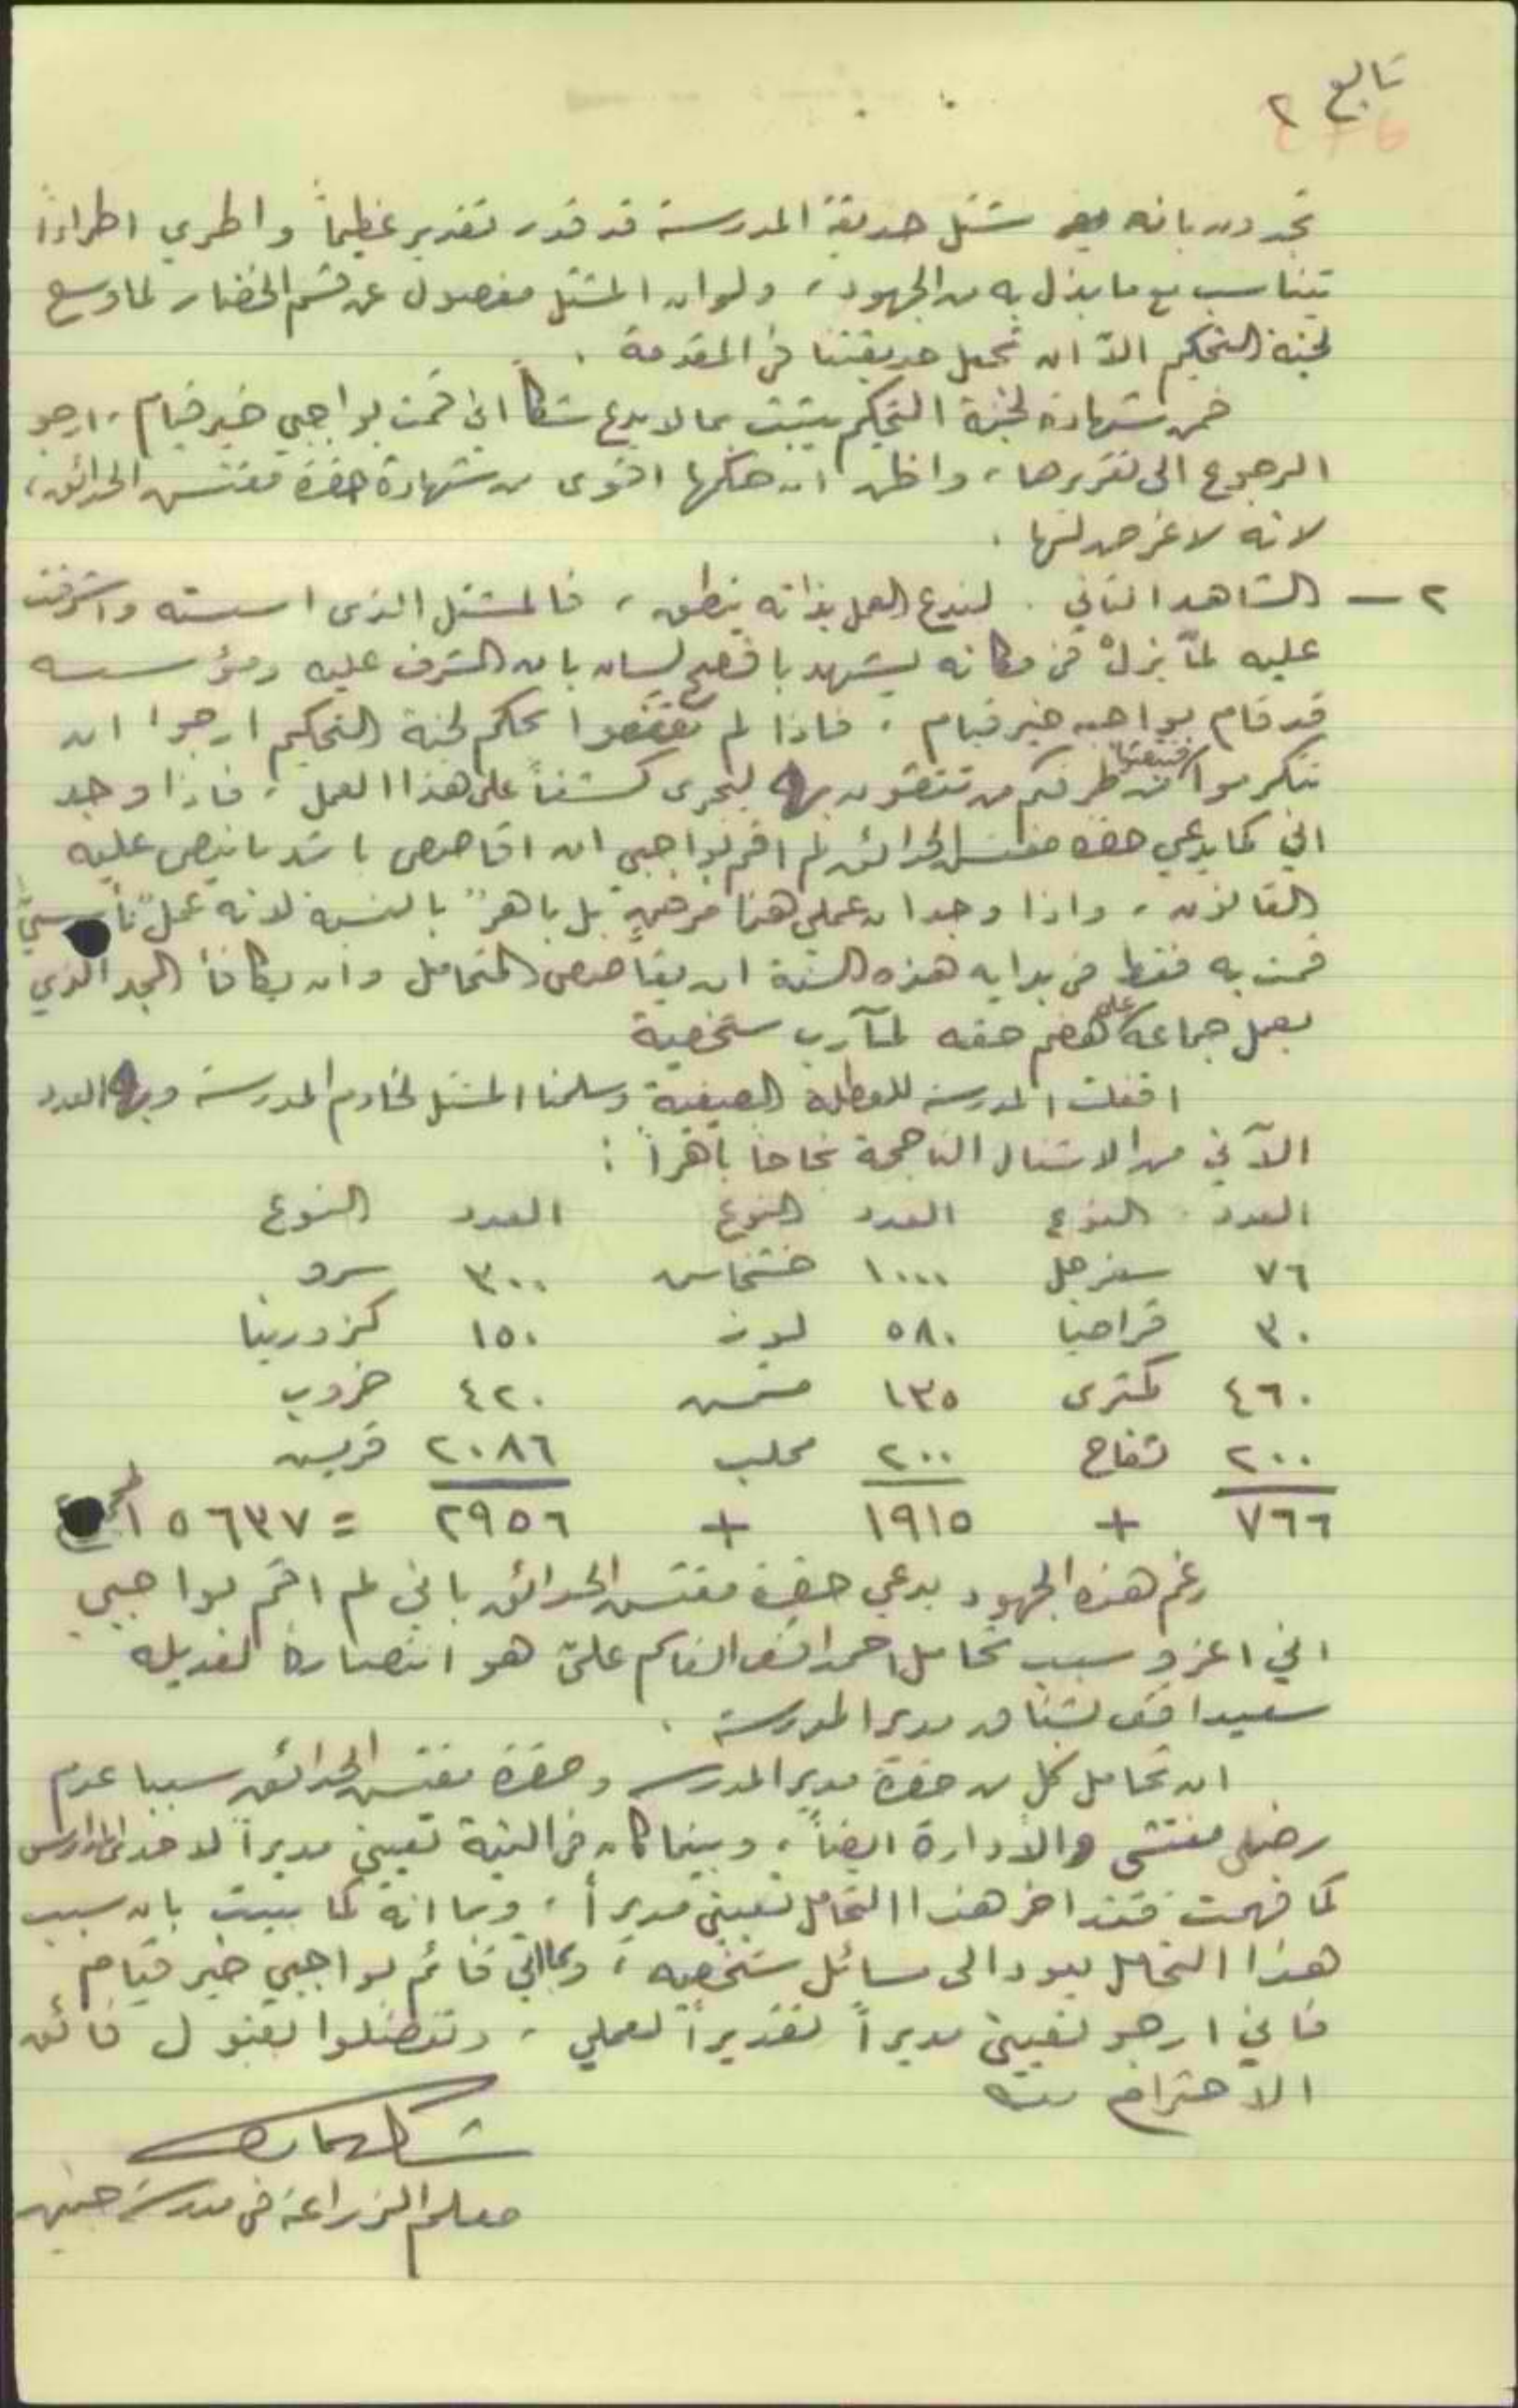 تابع ٢
تجدون بانه مشتل حديقة المدرسة قد قدر تقدير عظيماً واطري اطراءاً
تتناسب مع ما بذل به من الجهود، ولو ان المشتل مفصول عن قسم الخضار لما وسع
لجنة التحكيم الاّ ان تجعل حديقتنا في المقدمة .
فمن شهادة لجنة التحكيم يثبت بما لا يدع شكاً اني قمت بواجبي خير قيام، ارجو
الرجوع الى تقريرها، واظن ان حكمها اقوى من شهادة حضرة مفتش الحدائق،
لانه لا غرض لها .
٢ — الشاهد الثاني . لندع العمل بذاته ينطق، فالمشتل الذى اسسته واشرفت
عليه لمّا يزلْ في مكانه يشهد بافصح لسان بان المشرف عليه ومؤسسه
قد قام بواجبه خير قيام . فاذا لم تقتنعوا بحكم لجنة التحكيم ارجوا ان
تتكرموا من طرفكم من تثقون به ليجرى كشفاً على هذا العمل، فاذا وجد
اني كما يدعي حضرة مفتش الحدائق لم اقم بواجبي ان اقاصص باشد ما ينص عليه
القانون، واذا وجد ان عملي هذا مرضٍ بل باهرٌ بالنسبة لانه عملٌ تأسيسيٌ
قمت به فقط في بداية هذه السنة ان يقاصص المتحامل وان يكافأ المجد الذي
يعمل جماعة على هضم حقه لمآرب شخصية
اقفلت المدرسة للعطلة الصيفية وسلمنا المشتل لخادم المدرسة وبه العدد
الآتي من الاشتال الناجحة نجاحاً باهراً :
العدد النوع العدد النوع العدد النوع
٧٦ سفرجل ١٠٠٠ خشخاش ٣٠٠ سرو
٣٠ قراصيا ٥٨٠ لوز ١٥٠ كزورينا
٤٦٠ كمثرى ١٣٥ مشمش ٤٢٠ خروب
٢٠٠ تفاح ٢٠٠ محلب ٢٠٨٦ قريش
٧٦٦ + ١٩١٥ + ٢٩٥٦ = ٥٦٣٧ المجموع
رغم هذه الجهود يدعي حضرة مفتش الحدائق باني لم اقم بواجبي
اني اعزو سبب تحامل احمد افندي القاسم عليّ هو انتصاره لعديله
سعيد افندي بشناق مدير المدرسة .
ان تحامل كل من حضرة مدير المدرسة وحضرة مفتش الحدائق سببا عدم
رضى مفتشي والادارة ايضاً، وبينما كان في النية تعييني مديراً لاحدى المدارس
كما فهمت فقد اخر هذا التحامل تعييني مديراً، وبما انه كما بينت بان سبب
هذا التحامل يعود الى مسائل شخصية، وبما اني قائم بواجبي خير قيام
فاني ارجو تعييني مديراً تقديراً لعملي، وتفضلوا بقبول فائق
الاحترام
معلم الزراعة في مدرسة جنين